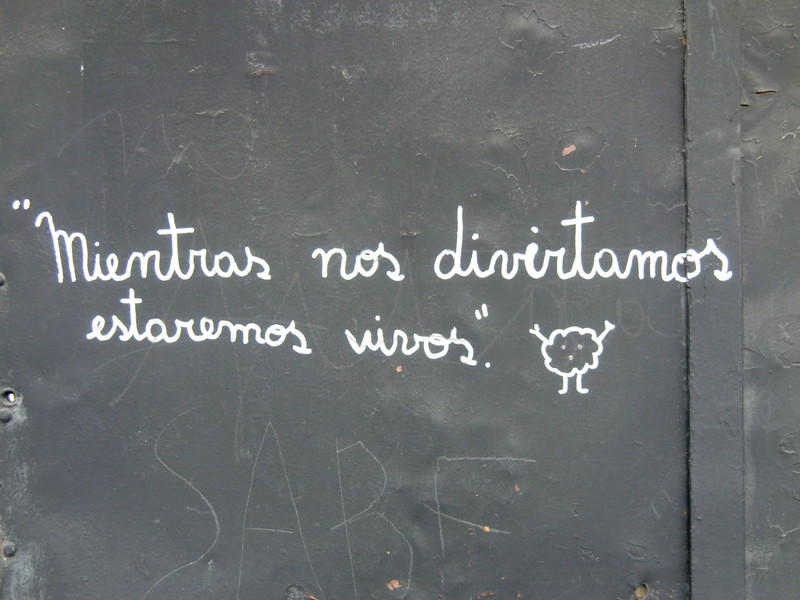 "Mientras nos divirtamos
estaremos vivos".
SABE